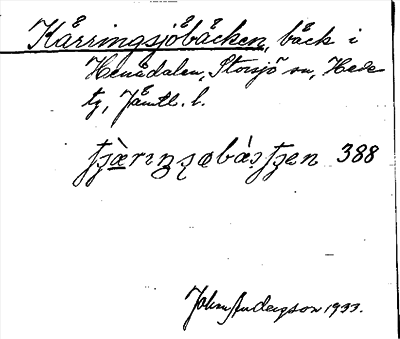 Kärringsjöbäcken, bäck i
Henådalen, Storsjö sn, Hede
tg, Jämtl. l.
388
John Andersson 1933.